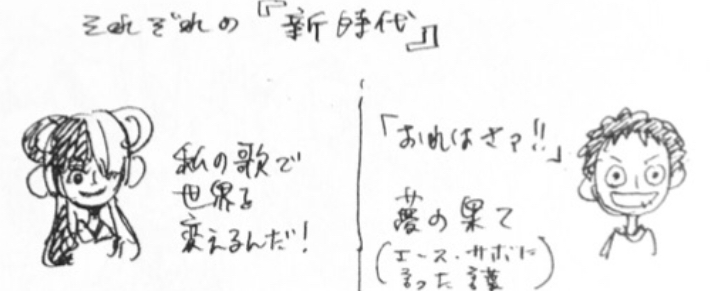 それぞれの『新時代』
私の歌で
世界を
変えるんだ!
「おれはさァ!!」
夢の果て
(エース・サボに
言った言葉)